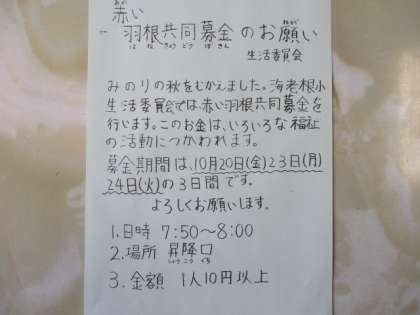 赤い
羽根共同募金のお願い
生活委員会
みのりの秋をむかえました。海老根小
生活委員会では、赤い羽根共同募金を
行います。このお金は、いろいろな福祉
の活動につかわれます。
募金期間は、10月20日(金)23日(月)
24日(火)の3日間です。
よろしくお願いします。
1.日時 7:50〜8:00
2.場所 昇降口
3.金額 1人10円以上